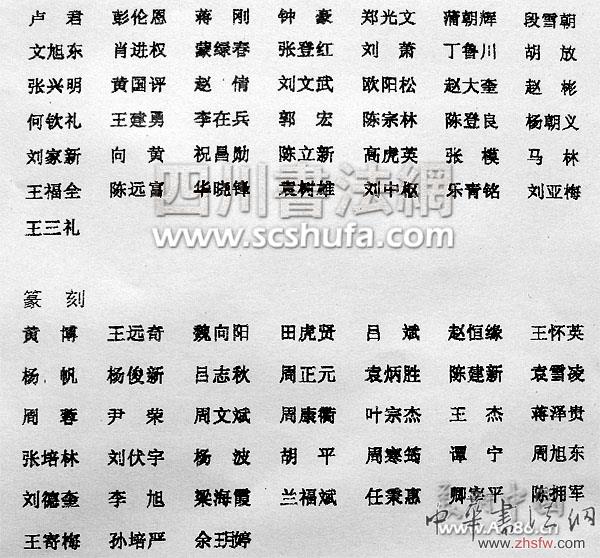 卢君 彭伦恩 蒋刚 钟豪 郑光文 蒲朝辉 段雪朝
文旭东 肖进权 蒙绿春 张登红 刘萧 丁鲁川 胡放
张兴明 黄国评 赵倩 刘文武 欧阳松 赵大奎 赵彬
何钦礼 王建勇 李在兵 郭宏 陈宗林 陈登良 杨朝义
刘家新 向黄 祝昌勋 陈立新 高虎英 张模 马林
王福全 陈远富 华晓锋 袁树雄 刘中枢 乐青铭 刘亚梅
四川書法網
王三礼
www.scshufa.com
篆刻
黄博 王远奇 魏向阳 田虎贤 吕斌 赵恒缘 王怀英
杨帆 杨俊新 吕志秋 周正元 袁炳胜 陈建新 袁雪凌
周蓉 尹荣 周文斌 周康衢 叶宗杰 王杰 蒋泽贵
张培林 刘伏宇 杨波 胡平 周寒筠 谭宁 周旭东
刘德奎 李旭 梁海霞 兰福斌 任秉惠 卿 平 陈拥军
中华书法网
王寄梅 孙培严 余玥婷
www.zhsfw.com